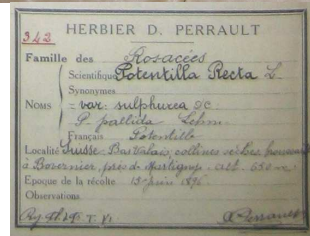 HERBIER D. PERRAULT
342
Famille des Rosacées
Scientifique Potentilla Recta L.
Synonymes
NOMS = var. sulphurea DC
P. pallida Lehm.
Français Potentille
Localité Suisse: Bas Valais, collines sèches
à Bovernier, près de Martigny - alt. 650 m
Epoque de la récolte 13 juin 1896
Observations